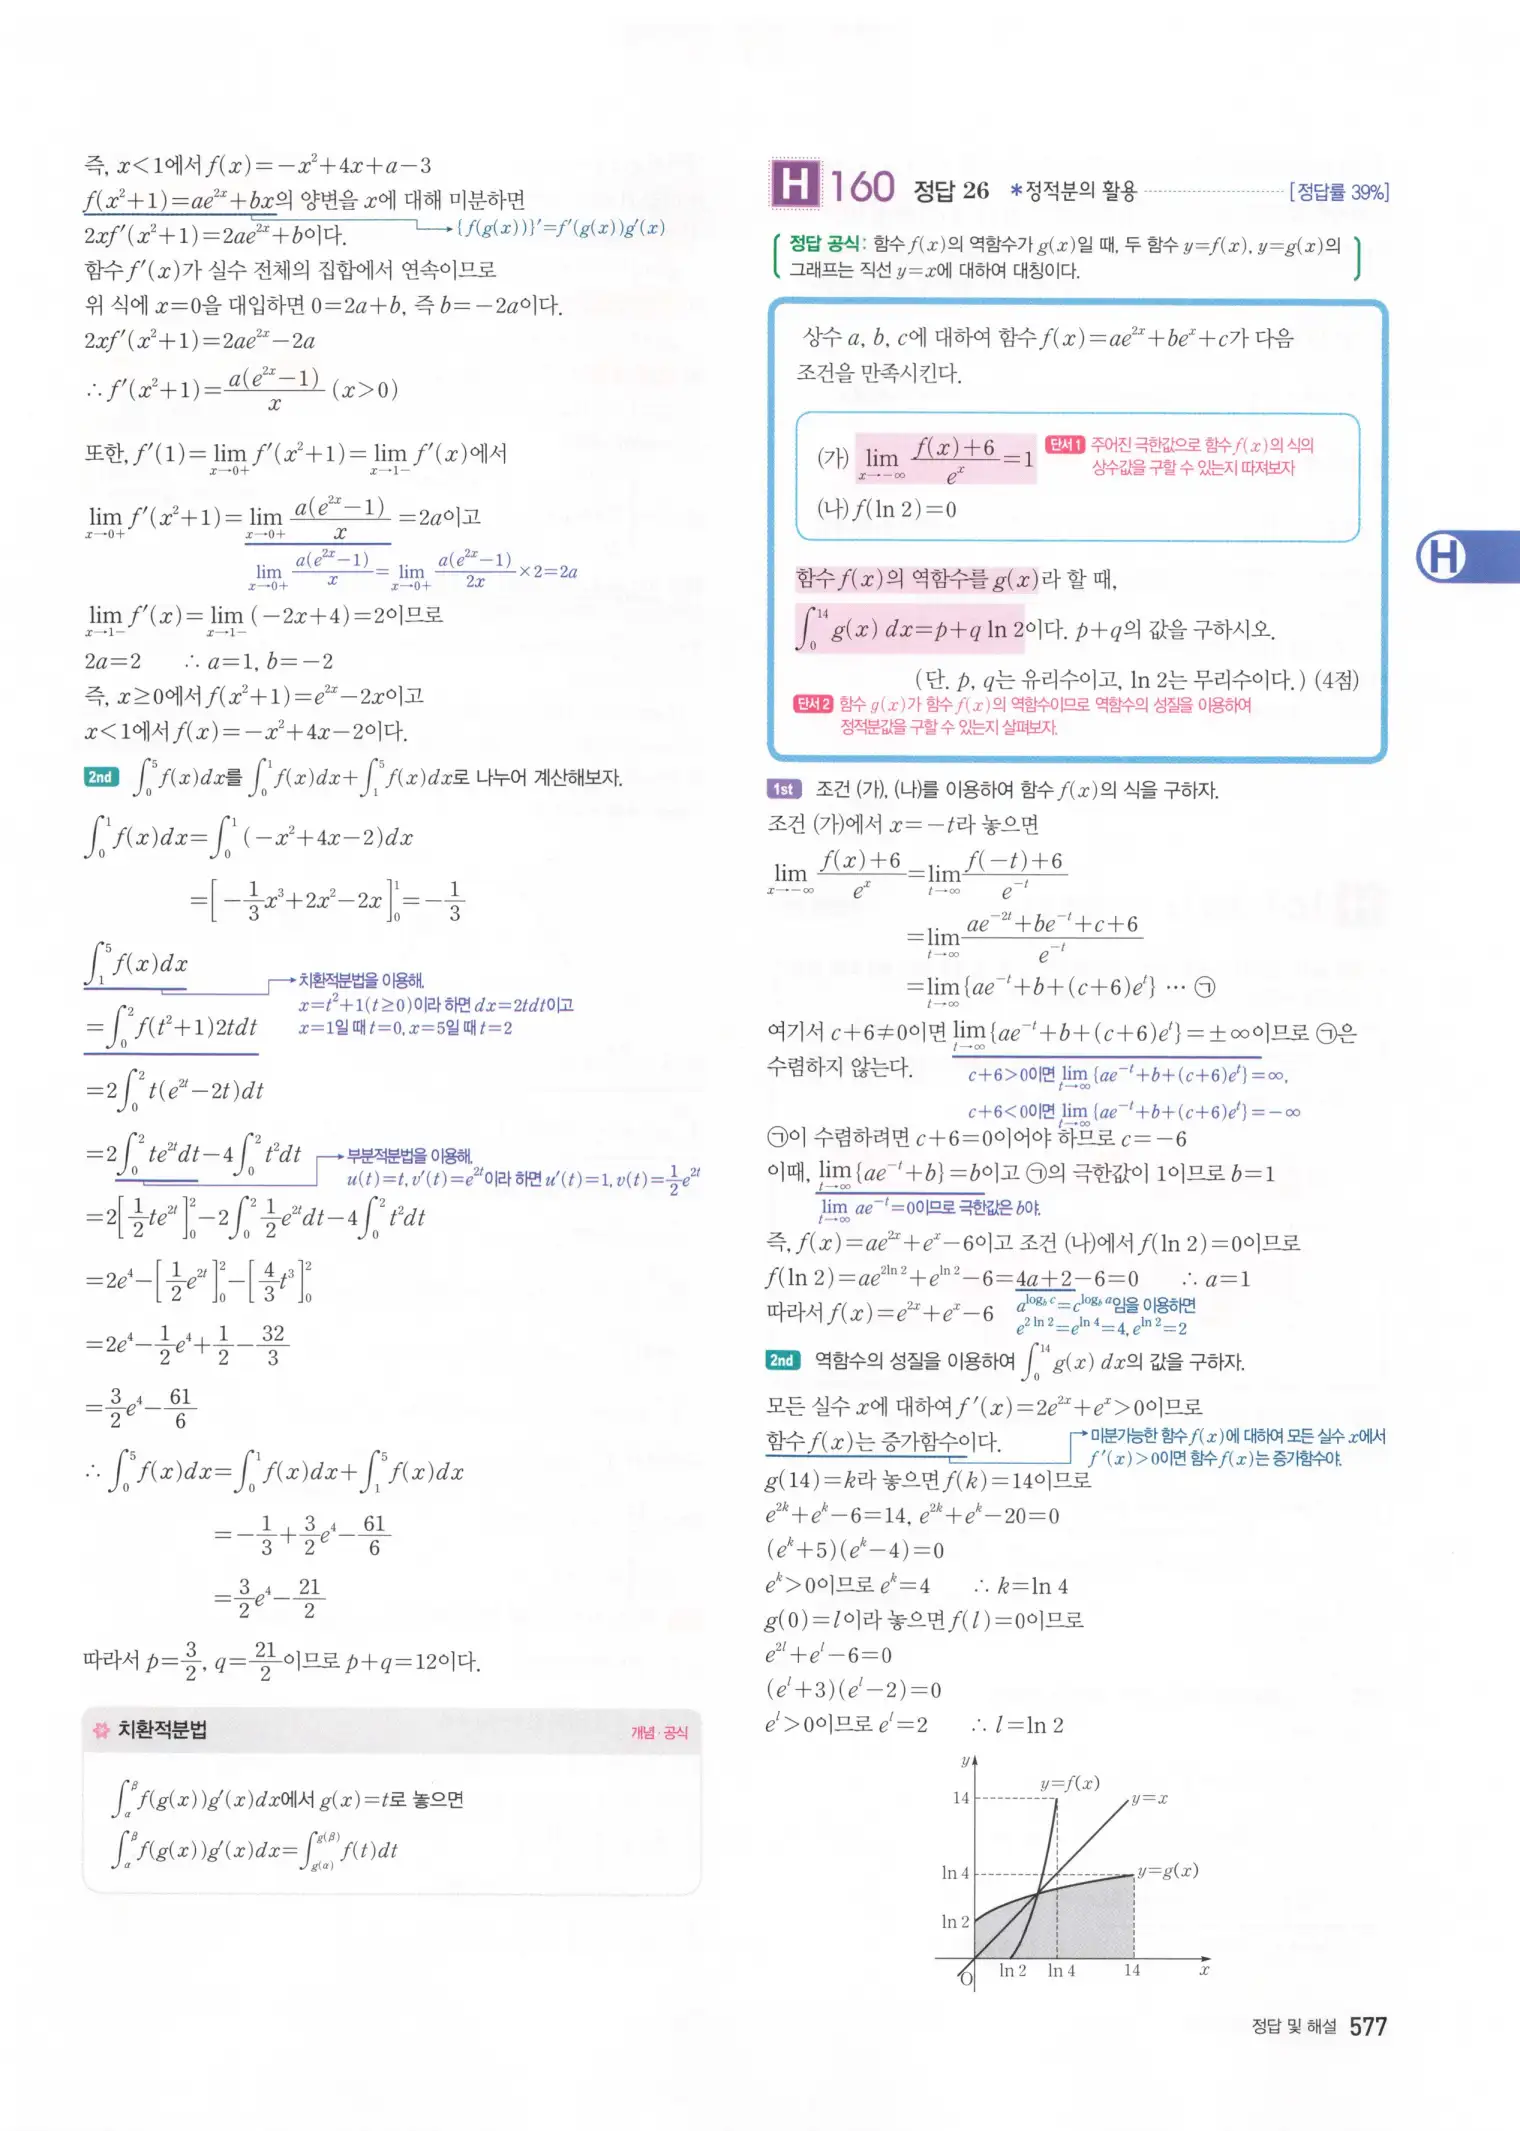 즉, x<1에서 f(x)=-x²+4x+a-3
f(x²+1)=ae²ˣ+bx의 양변을 x에 대해 미분하면
2xf′(x²+1)=2ae²ˣ+b이다.
{f(g(x))}′=f′(g(x))g′(x)
함수 f′(x)가 실수 전체의 집합에서 연속이므로
위 식에 x=0을 대입하면 0=2a+b, 즉 b=-2a이다.
2xf′(x²+1)=2ae²ˣ-2a
∴ f′(x²+1)=a(e²ˣ-1)/x (x>0)
또한, f′(1)=lim_{x→0+} f′(x²+1)=lim_{x→1-} f′(x)에서
lim_{x→0+} f′(x²+1)=lim_{x→0+} a(e²ˣ-1)/x=2a이고
lim_{x→0+} a(e²ˣ-1)/x=lim_{x→0+} a(e²ˣ-1)/2x×2=2a
lim_{x→1-} f′(x)=lim_{x→1-} (-2x+4)=2이므로
2a=2 ∴ a=1, b=-2
즉, x≥0에서 f(x²+1)=e²ˣ-2x이고
x<1에서 f(x)=-x²+4x-2이다.
2nd ∫₀⁵ f(x)dx를 ∫₀¹ f(x)dx+∫₁⁵ f(x)dx로 나누어 계산해보자.
∫₀¹ f(x)dx=∫₀¹ (-x²+4x-2)dx
=[-1/3x³+2x²-2x]₀¹=-1/3
∫₁⁵ f(x)dx
치환적분법을 이용해.
x=t²+1(t≥0)이라 하면 dx=2tdt이고
=∫₀² f(t²+1)2tdt
x=1일 때 t=0, x=5일 때 t=2
=2∫₀² t(e²ᵗ-2t)dt
=2∫₀² te²ᵗdt-4∫₀² t²dt
부분적분법을 이용해.
u(t)=t, v′(t)=e²ᵗ이라 하면 u′(t)=1, v(t)=1/2e²ᵗ
=2[1/2te²ᵗ]₀²-2∫₀² 1/2e²ᵗdt-4∫₀² t²dt
=2e⁴-[1/2e²ᵗ]₀²-[4/3t³]₀²
=2e⁴-1/2e⁴+1/2-32/3
=3/2e⁴-61/6
∴ ∫₀⁵ f(x)dx=∫₀¹ f(x)dx+∫₁⁵ f(x)dx
=-1/3+3/2e⁴-61/6
=3/2e⁴-21/2
따라서 p=3/2, q=21/2이므로 p+q=12이다.
치환적분법 개념·공식
∫_α^β f(g(x))g′(x)dx에서 g(x)=t로 놓으면
∫_α^β f(g(x))g′(x)dx=∫_{g(α)}^{g(β)} f(t)dt
H 160 정답 26 *정적분의 활용 [정답률 39%]
정답 공식: 함수 f(x)의 역함수가 g(x)일 때, 두 함수 y=f(x), y=g(x)의
그래프는 직선 y=x에 대하여 대칭이다.
상수 a, b, c에 대하여 함수 f(x)=ae²ˣ+beˣ+c가 다음
조건을 만족시킨다.
(가) lim_{x→-∞} (f(x)+6)/eˣ=1 단서1 주어진 극한값으로 함수 f(x)의 식의
상수값을 구할 수 있는지 따져보자
(나) f(ln 2)=0
함수 f(x)의 역함수를 g(x)라 할 때,
∫₀¹⁴ g(x) dx=p+q ln 2이다. p+q의 값을 구하시오.
(단, p, q는 유리수이고, ln 2는 무리수이다.) (4점)
단서2 함수 g(x)가 함수 f(x)의 역함수이므로 역함수의 성질을 이용하여
정적분값을 구할 수 있는지 살펴보자.
H
1st 조건 (가), (나)를 이용하여 함수 f(x)의 식을 구하자.
조건 (가)에서 x=-t라 놓으면
lim_{x→-∞} (f(x)+6)/eˣ=lim_{t→∞} (f(-t)+6)/e⁻ᵗ
=lim_{t→∞} (ae⁻²ᵗ+be⁻ᵗ+c+6)/e⁻ᵗ
=lim_{t→∞} {ae⁻ᵗ+b+(c+6)eᵗ} … ㉠
여기서 c+6≠0이면 lim_{t→∞} {ae⁻ᵗ+b+(c+6)eᵗ}=±∞이므로 ㉠은
수렴하지 않는다.
c+6>0이면 lim_{t→∞} {ae⁻ᵗ+b+(c+6)eᵗ}=∞,
c+6<0이면 lim_{t→∞} {ae⁻ᵗ+b+(c+6)eᵗ}=-∞
㉠이 수렴하려면 c+6=0이어야 하므로 c=-6
이때, lim_{t→∞} {ae⁻ᵗ+b}=b이고 ㉠의 극한값이 1이므로 b=1
lim_{t→∞} ae⁻ᵗ=0이므로 극한값은 b야.
즉, f(x)=ae²ˣ+eˣ-6이고 조건 (나)에서 f(ln 2)=0이므로
f(ln 2)=ae^{2ln 2}+e^{ln 2}-6=4a+2-6=0 ∴ a=1
따라서 f(x)=e²ˣ+eˣ-6
a^{log_b c}=c^{log_b a}임을 이용하면
e^{2 ln 2}=e^{ln 4}=4, e^{ln 2}=2
2nd 역함수의 성질을 이용하여 ∫₀¹⁴ g(x) dx의 값을 구하자.
모든 실수 x에 대하여 f′(x)=2e²ˣ+eˣ>0이므로
함수 f(x)는 증가함수이다.
미분가능한 함수 f(x)에 대하여 모든 실수 x에서
f′(x)>0이면 함수 f(x)는 증가함수야.
g(14)=k라 놓으면 f(k)=14이므로
e²ᵏ+eᵏ-6=14, e²ᵏ+eᵏ-20=0
(eᵏ+5)(eᵏ-4)=0
eᵏ>0이므로 eᵏ=4 ∴ k=ln 4
g(0)=l이라 놓으면 f(l)=0이므로
e²ˡ+eˡ-6=0
(eˡ+3)(eˡ-2)=0
eˡ>0이므로 eˡ=2 ∴ l=ln 2
y
y=f(x)
14
y=x
ln 4
y=g(x)
ln 2
O ln 2 ln 4 14 x
정답 및 해설 577